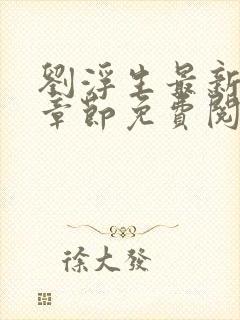 劉浮生最新
章節免費閱
徐大發